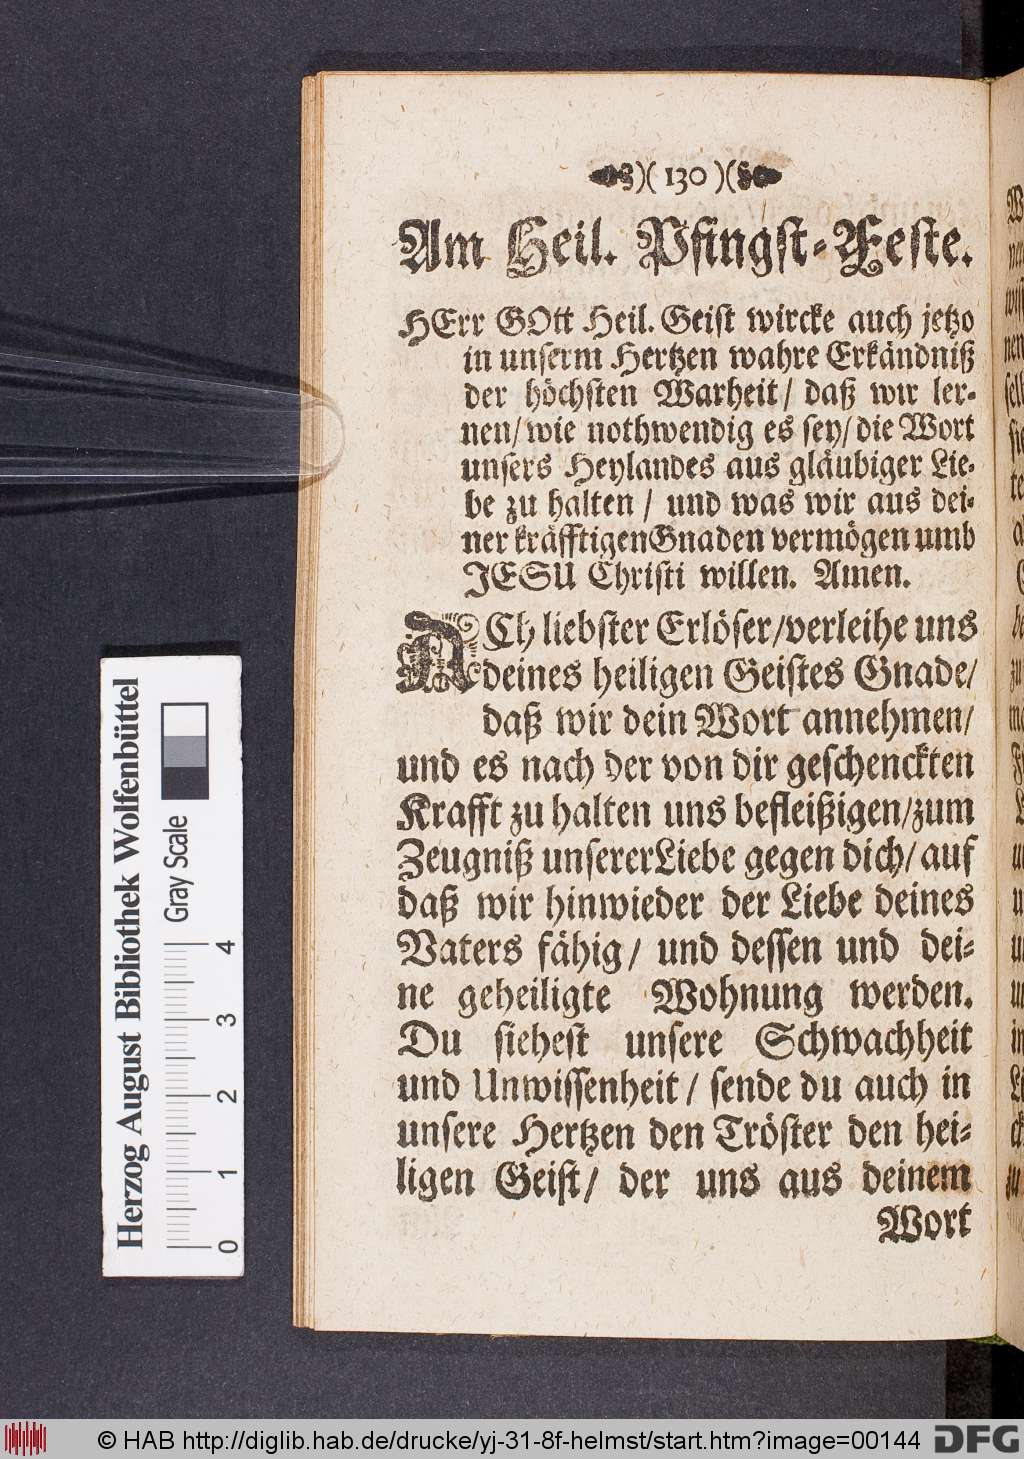 )( 130 )(
Am Heil. Pfingst-Feste.
HErr GOtt Heil. Geist wircke auch jetzo
in unserm Hertzen wahre Erkändniß
der höchsten Warheit/ daß wir ler-
nen/ wie nothwendig es sey/ die Wort
unsers Heylandes aus gläubiger Lie-
be zu halten / und was wir aus dei-
ner kräfftigen Gnaden vermögen umb
JESU Christi willen. Amen.
ACh liebster Erlöser/ verleihe uns
deines heiligen Geistes Gnade/
daß wir dein Wort annehmen/
und es nach der von dir geschenckten
Krafft zu halten uns befleißigen/ zum
Zeugniß unserer Liebe gegen dich/ auf
daß wir hinwieder der Liebe deines
Vaters fähig/ und dessen und dei-
ne geheiligte Wohnung werden.
Du siehest unsere Schwachheit
und Unwissenheit/ sende du auch in
unsere Hertzen den Tröster den hei-
ligen Geist/ der uns aus deinem
Wort
Herzog August Bibliothek Wolfenbüttel
Gray Scale
0 1 2 3 4
© HAB http://diglib.hab.de/drucke/yj-31-8f-helmst/start.htm?image=00144
DFG